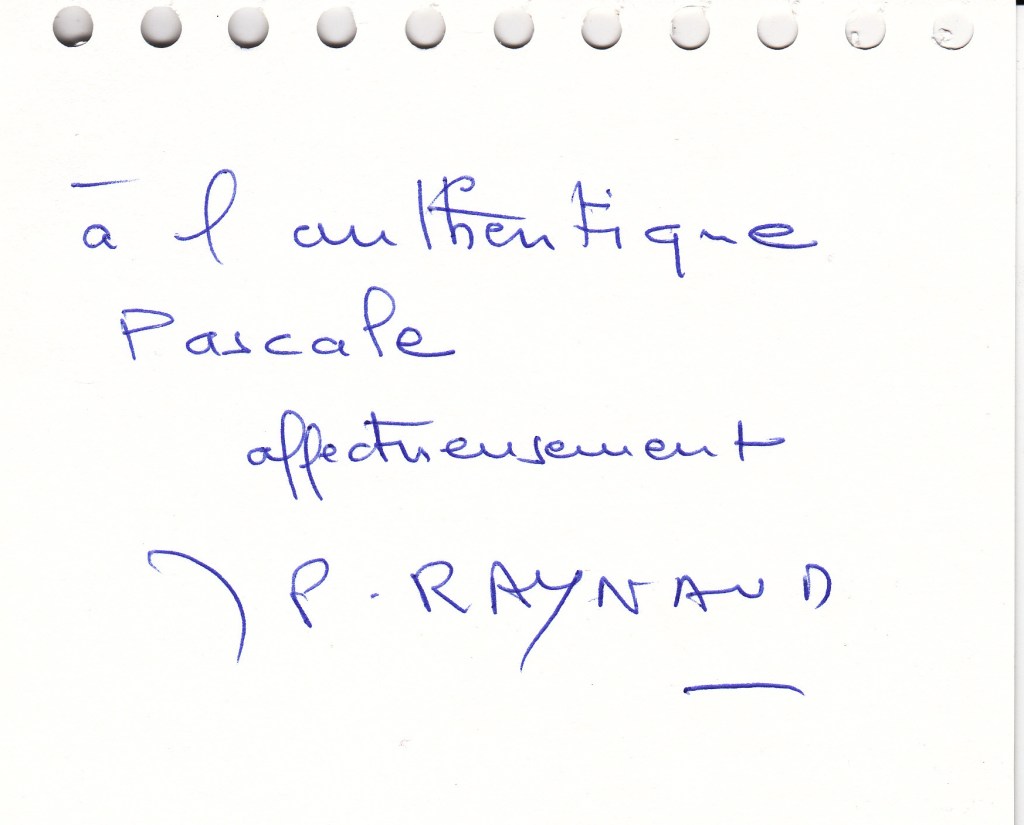 à l'authentique
Pascale
affectueusement
J P. RAYNAUD